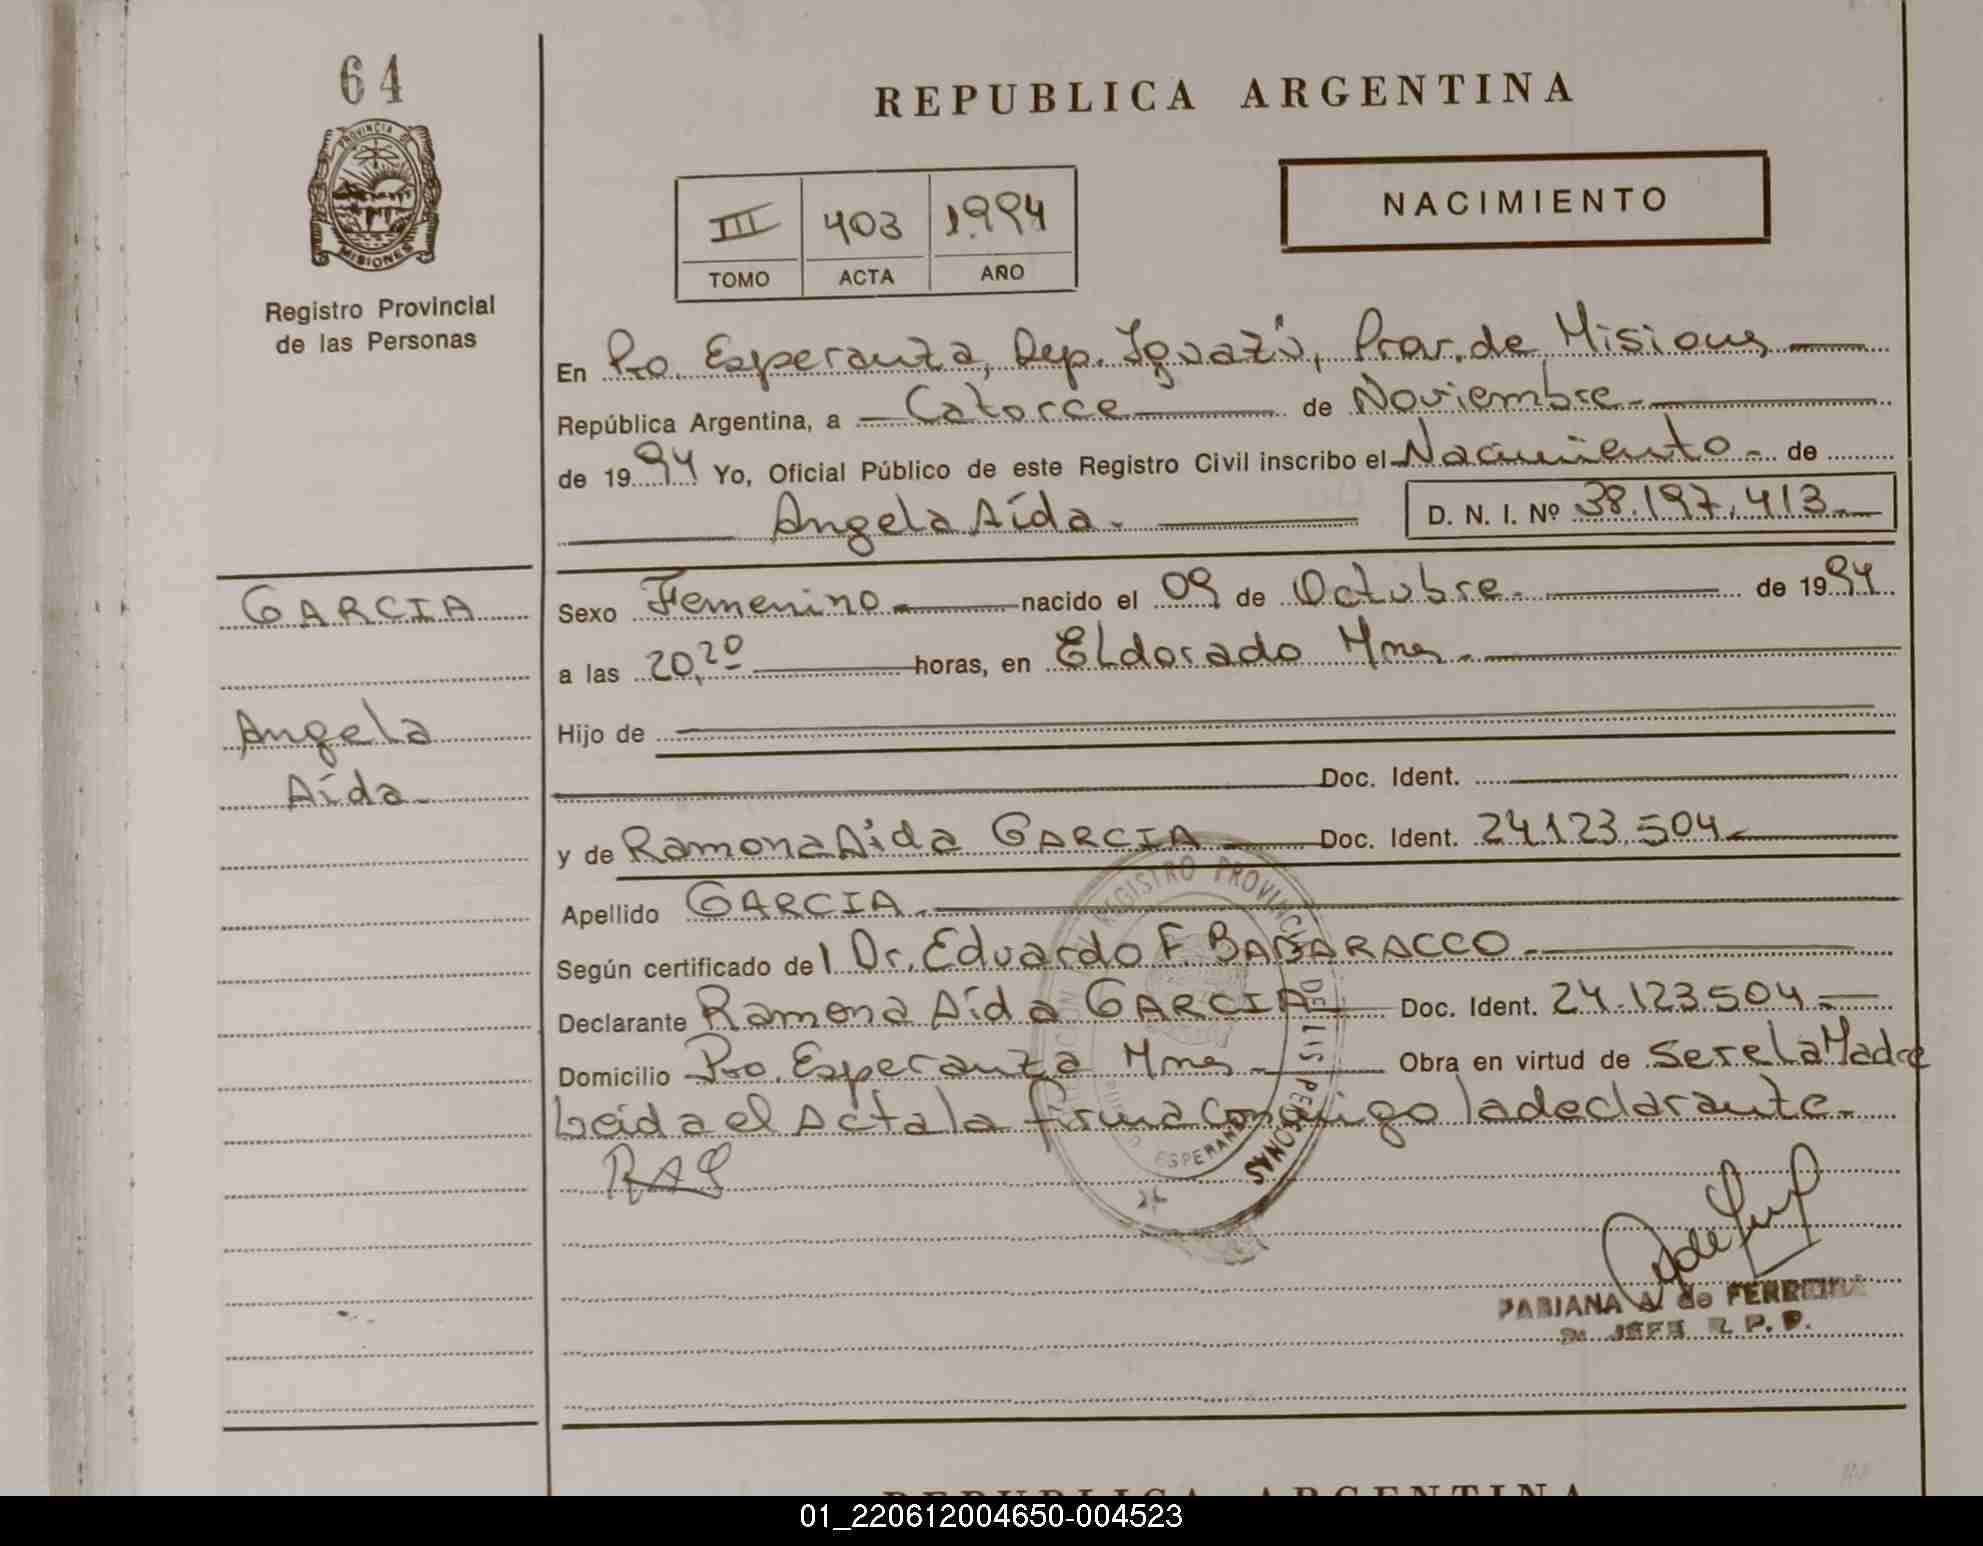 64
REPUBLICA ARGENTINA
PROVINCIA DE
MISIONES
Registro Provincial
de las Personas
III 403 1994
TOMO ACTA AÑO
NACIMIENTO
En Pto. Esperanza, Dep. Iguazú, Prov. de Misiones
República Argentina, a Catorce de Noviembre.
de 1994 Yo, Oficial Público de este Registro Civil inscribo el Nacimiento. de
Angela Aída. D. N. I. Nº 38.197.413
GARCIA
Angela
Aída
Sexo Femenino nacido el 09 de Octubre. de 1994
a las 20,20 horas, en Eldorado Mnes.
Hijo de
Doc. Ident.
y de Ramona Aída GARCIA Doc. Ident. 24.123.504
Apellido GARCIA.
Según certificado del Dr. Eduardo F BADARACCO.
Declarante Ramona Aída GARCIA Doc. Ident. 24.123.504.
Domicilio Pto. Esperanza Mnes Obra en virtud de ser la Madre
Leida el Acta la firma conmigo la declarante.
RAG
REGISTRO PROVINCIAL DE LAS PERSONAS
ESPERANZA
FABIANA A. de FERREIRA
JEFE R. P. P.
REPUBLICA ARGENTINA
01_220612004650-004523